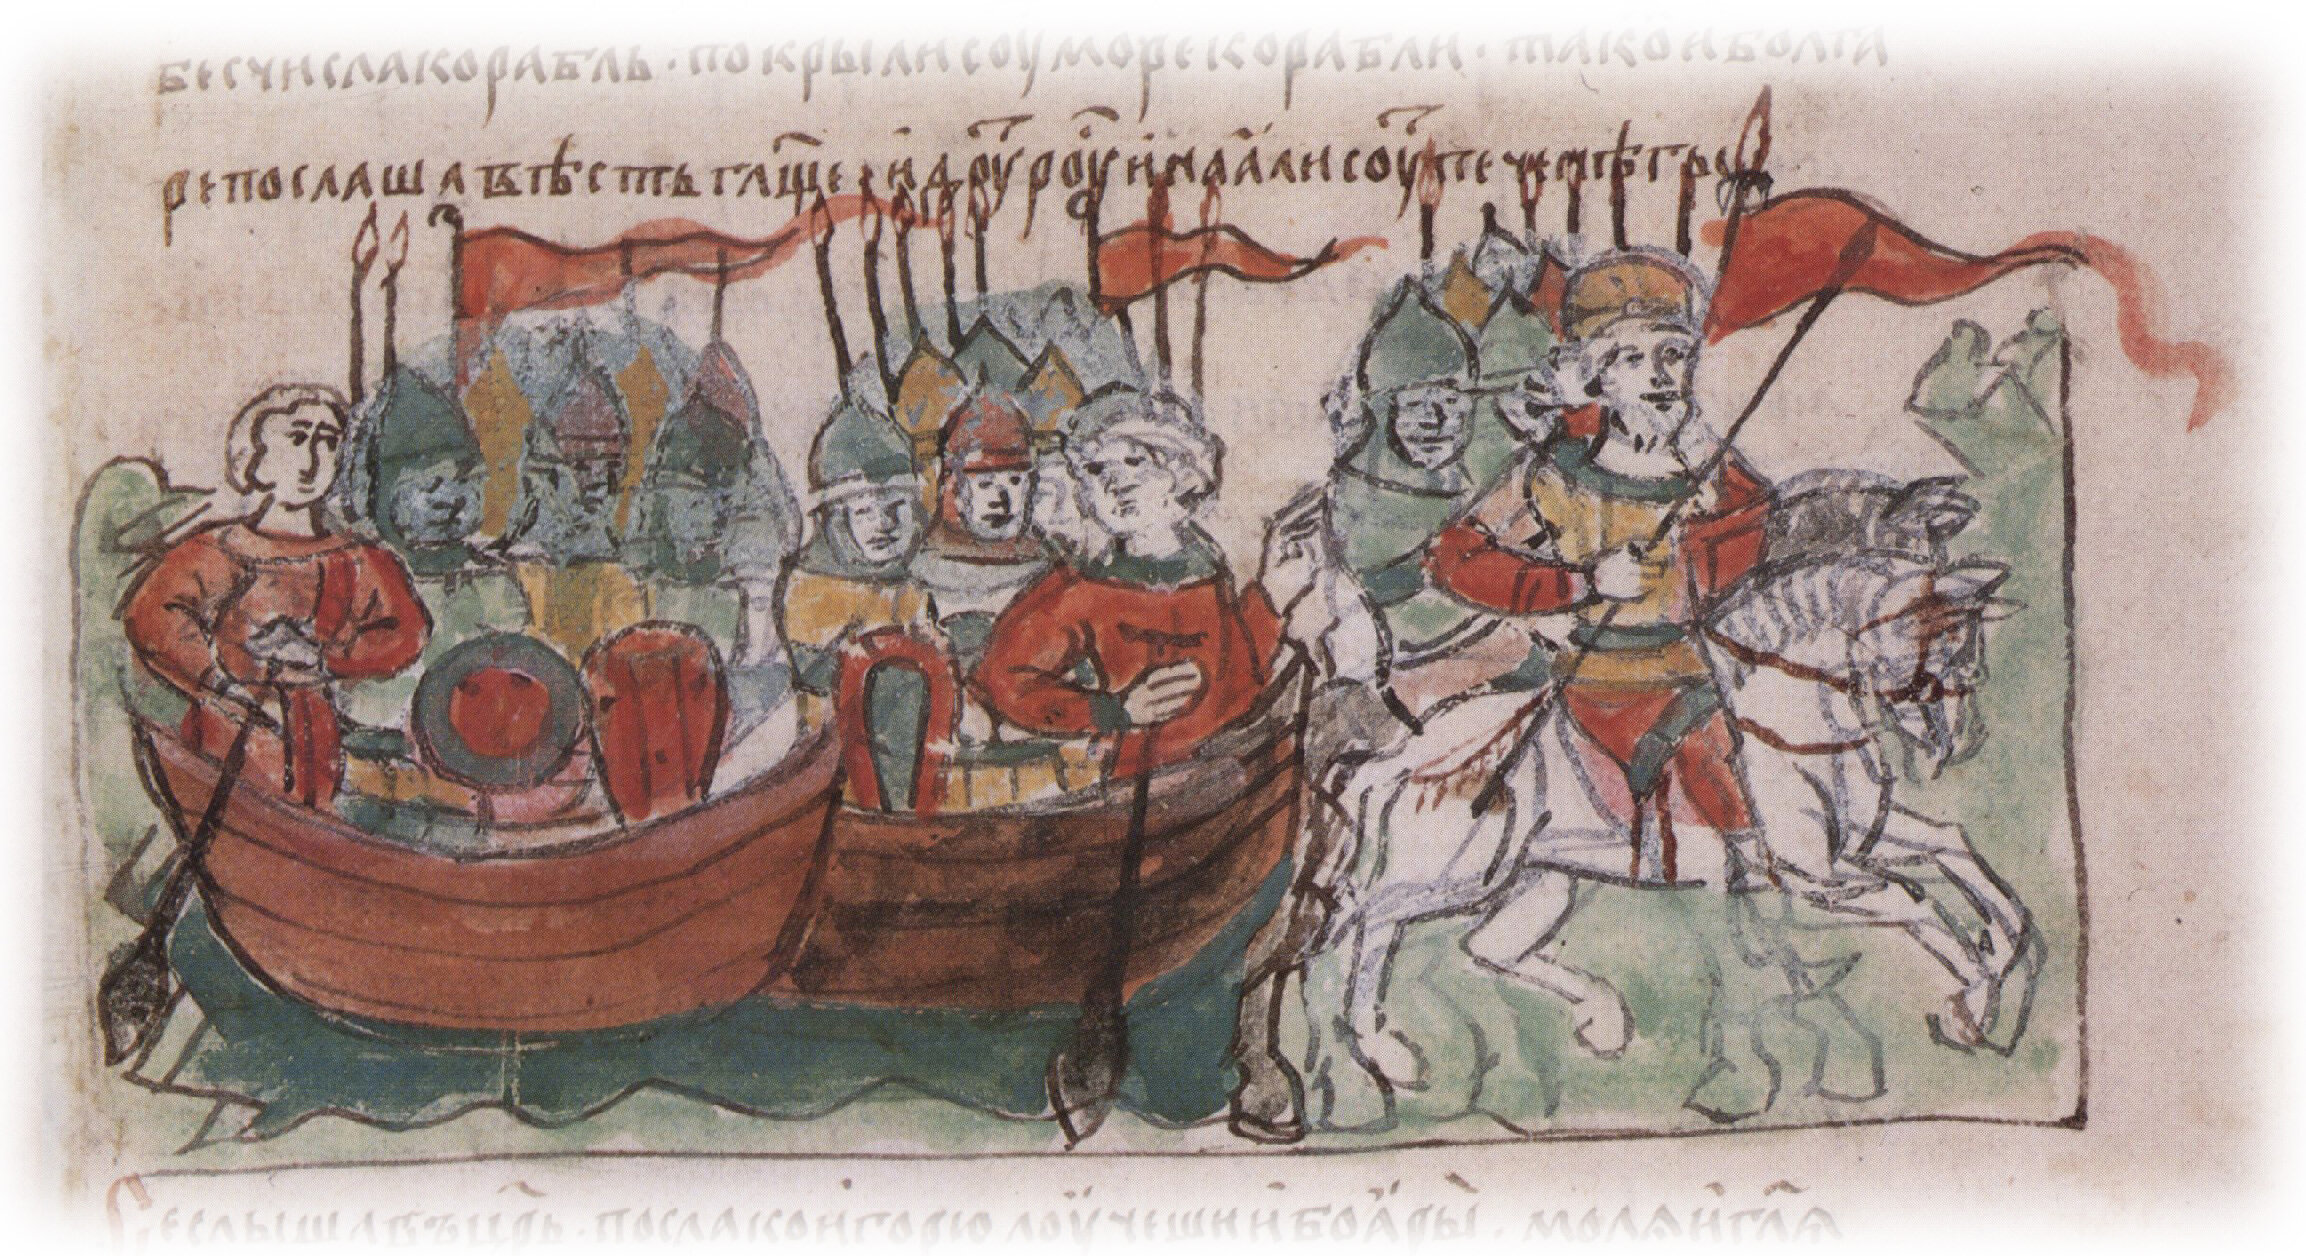 бесчисла корабль · покрыли соу море корабли · тако и болга
ре послаша вѣсть гл҃ще · идоуⷮ роуⷭ и наѧли соуⷮ печенѣгы
се слышавъ цр҃ь · посла ко игорю лоучешии боѧры · молѧ и гл҃ѧ